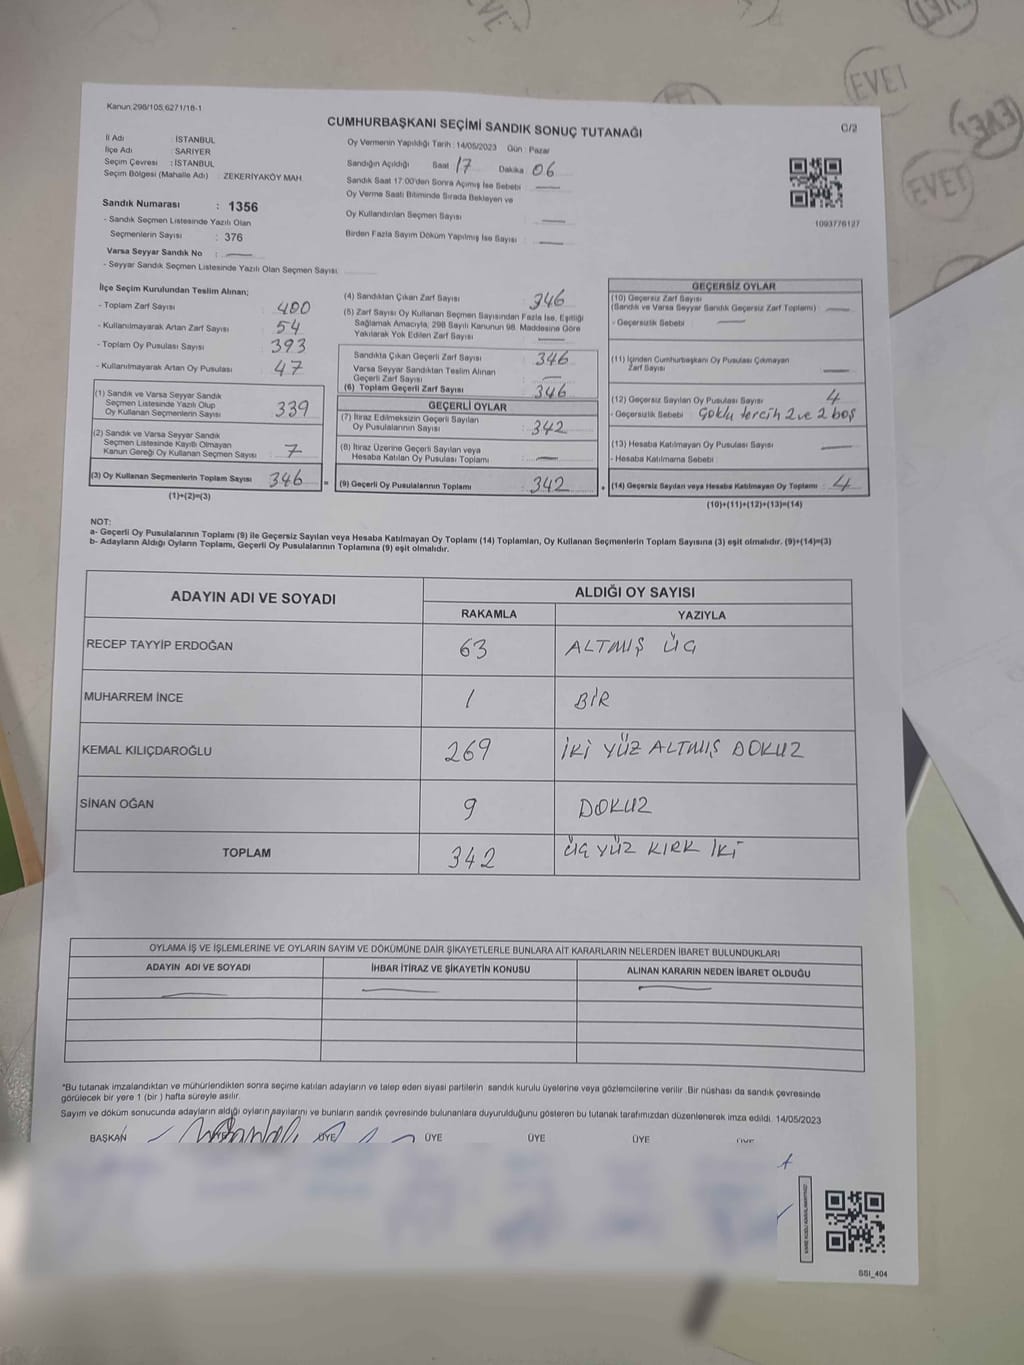 EVET
EVET
EVET
EVET
Kanun;298/105,6271/18-1
CUMHURBAŞKANI SEÇİMİ SANDIK SONUÇ TUTANAĞI
C/2
İl Adı : İSTANBUL
İlçe Adı : SARIYER
Seçim Çevresi : İSTANBUL
Seçim Bölgesi (Mahalle Adı) : ZEKERİYAKÖY MAH.
Sandık Numarası : 1356
- Sandık Seçmen Listesinde Yazılı Olan
Seçmenlerin Sayısı : 376
Varsa Seyyar Sandık No : —
- Seyyar Sandık Seçmen Listesinde Yazılı Olan Seçmen Sayısı
Oy Vermenin Yapıldığı Tarih : 14/05/2023 Gün : Pazar
Sandığın Açıldığı Saat 17 Dakika 06
Sandık Saat 17:00'den Sonra Açımış İse Sebebi —
Oy Verme Saati Bitiminde Sırada Bekleyen ve
Oy Kullandırılan Seçmen Sayısı —
Birden Fazla Sayım Döküm Yapılmış İse Sayısı —
1093776127
İlçe Seçim Kurulundan Teslim Alınan;
- Toplam Zarf Sayısı 400
- Kullanılmayarak Artan Zarf Sayısı 54
- Toplam Oy Pusulası Sayısı 393
- Kullanılmayarak Artan Oy Pusulası 47
(1) Sandık ve Varsa Seyyar Sandık
Seçmen Listesinde Yazılı Olup
Oy Kullanan Seçmenlerin Sayısı 339
(2) Sandık ve Varsa Seyyar Sandık
Seçmen Listesinde Kayıtlı Olmayan
Kanun Gereği Oy Kullanan Seçmen Sayısı 7
(3) Oy Kullanan Seçmenlerin Toplam Sayısı 346 =
(1)+(2)=(3)
(4) Sandıktan Çıkan Zarf Sayısı 346
(5) Zarf Sayısı Oy Kullanan Seçmen Sayısından Fazla İse, Eşitliği
Sağlamak Amacıyla, 298 Sayılı Kanunun 98. Maddesine Göre
Yakılarak Yok Edilen Zarf Sayısı —
Sandıkta Çıkan Geçerli Zarf Sayısı 346
Varsa Seyyar Sandıktan Teslim Alınan
Geçerli Zarf Sayısı —
(6) Toplam Geçerli Zarf Sayısı 346
GEÇERLİ OYLAR
(7) İtiraz Edilmeksizin Geçerli Sayılan
Oy Pusulalarının Sayısı 342
(8) İtiraz Üzerine Geçerli Sayılan veya
Hesaba Katılan Oy Pusulası Toplamı —
(9) Geçerli Oy Pusulalarının Toplamı : 342 +
GEÇERSİZ OYLAR
(10) Geçersiz Zarf Sayısı
(Sandık ve Varsa Seyyar Sandık Geçersiz Zarf Toplamı) : —
- Geçersizlik Sebebi : —
(11) İçinden Cumhurbaşkanı Oy Pusulası Çıkmayan
Zarf Sayısı —
(12) Geçersiz Sayılan Oy Pusulası Sayısı 4
- Geçersizlik Sebebi : Çoklu tercih 2 ve 2 boş
(13) Hesaba Katılmayan Oy Pusulası Sayısı —
- Hesaba Katılmama Sebebi :
(14) Geçersiz Sayılan veya Hesaba Katılmayan Oy Toplamı : 4
(10)+(11)+(12)+(13)=(14)
NOT:
a- Geçerli Oy Pusulalarının Toplamı (9) ile Geçersiz Sayılan veya Hesaba Katılmayan Oy Toplamı (14) Toplamları, Oy Kullanan Seçmenlerin Toplam Sayısına (3) eşit olmalıdır. (9)+(14)=(3)
b- Adayların Aldığı Oyların Toplamı, Geçerli Oy Pusulalarının Toplamına (9) eşit olmalıdır.
ADAYIN ADI VE SOYADI
ALDIĞI OY SAYISI
RAKAMLA YAZIYLA
RECEP TAYYİP ERDOĞAN 63 ALTMIŞ ÜÇ
MUHARREM İNCE 1 BİR
KEMAL KILIÇDAROĞLU 269 İKİ YÜZ ALTMIŞ DOKUZ
SİNAN OĞAN 9 DOKUZ
TOPLAM 342 ÜÇ YÜZ KIRK İKİ
OYLAMA İŞ VE İŞLEMLERİNE VE OYLARIN SAYIM VE DÖKÜMÜNE DAİR ŞİKAYETLERLE BUNLARA AİT KARARLARIN NELERDEN İBARET BULUNDUKLARI
ADAYIN ADI VE SOYADI İHBAR İTİRAZ VE ŞİKAYETİN KONUSU ALINAN KARARIN NEDEN İBARET OLDUĞU
— — —
*Bu tutanak imzalandıktan ve mühürlendikten sonra seçime katılan adayların ve talep eden siyasi partilerin sandık kurulu üyelerine veya gözlemcilerine verilir. Bir nüshası da sandık çevresinde
görülecek bir yere 1 (bir ) hafta süreyle asılır.
Sayım ve döküm sonucunda adayların aldığı oyların sayılarını ve bunların sandık çevresinde bulunanlara duyurulduğunu gösteren bu tutanak tarafımızdan düzenlenerek imza edildi. 14/05/2023
BAŞKAN ÜYE ÜYE ÜYE ÜYE
SSI_404